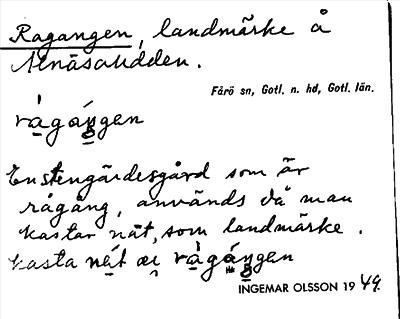 Ragangen, landmärke å
Alnäsaudden.
Fårö sn, Gotl. n. hd, Gotl. län.
rågången
En stengärdesgård som är
rågång, används då man
kastar nät, som landmärke.
kasta nät æi rågången
INGEMAR OLSSON 1949.